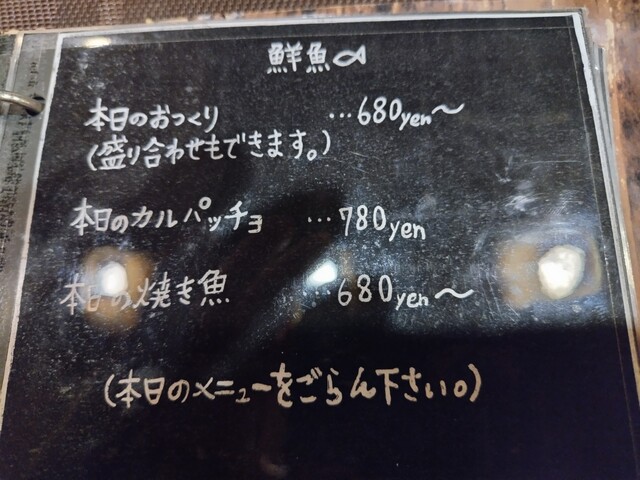 鮮魚
本日のおつくり …680yen〜
(盛り合わせもできます。)
本日のカルパッチョ …780yen
本日の焼き魚 …680yen〜
(本日のメニューをごらん下さい。)